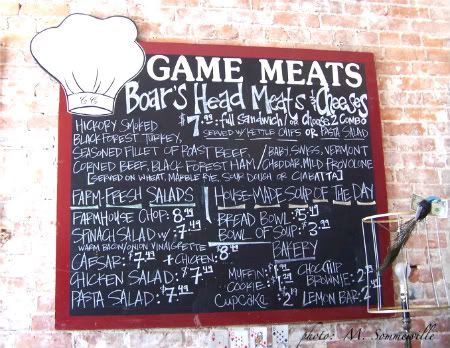 GAME MEATS
Boar's Head Meats & Cheeses
$7.99: full sandwich / or choose 2 combo
SERVED W/ KETTLE CHIPS OR PASTA SALAD
HICKORY SMOKED
BLACK FOREST TURKEY,
SEASONED FILLET OF ROAST BEEF, / BABY SWISS, VERMONT
CORNED BEEF, BLACK FOREST HAM / CHEDDAR, MILD PROVOLONE
[SERVED ON WHEAT, MARBLE RYE, SOUR DOUGH OR CIABATTA]
FARM-FRESH SALADS
FARMHOUSE CHOP: 8.99
SPINACH SALAD W/: 7.49
WARM BACON/ONION VINAIGRETTE
CAESAR: $7.49 + CHICKEN: $8.99
CHICKEN SALAD: $7.49
PASTA SALAD: $7.49
HOUSE-MADE SOUP OF THE DAY
BREAD BOWL: $5.49
BOWL OF SOUP: $3.99
BAKERY
MUFFIN:
COOKIE:
CUPCAKE: 2
CHOC CHIP
BROWNIE: 2
LEMON BAR: 2
photo: M. Sommerville